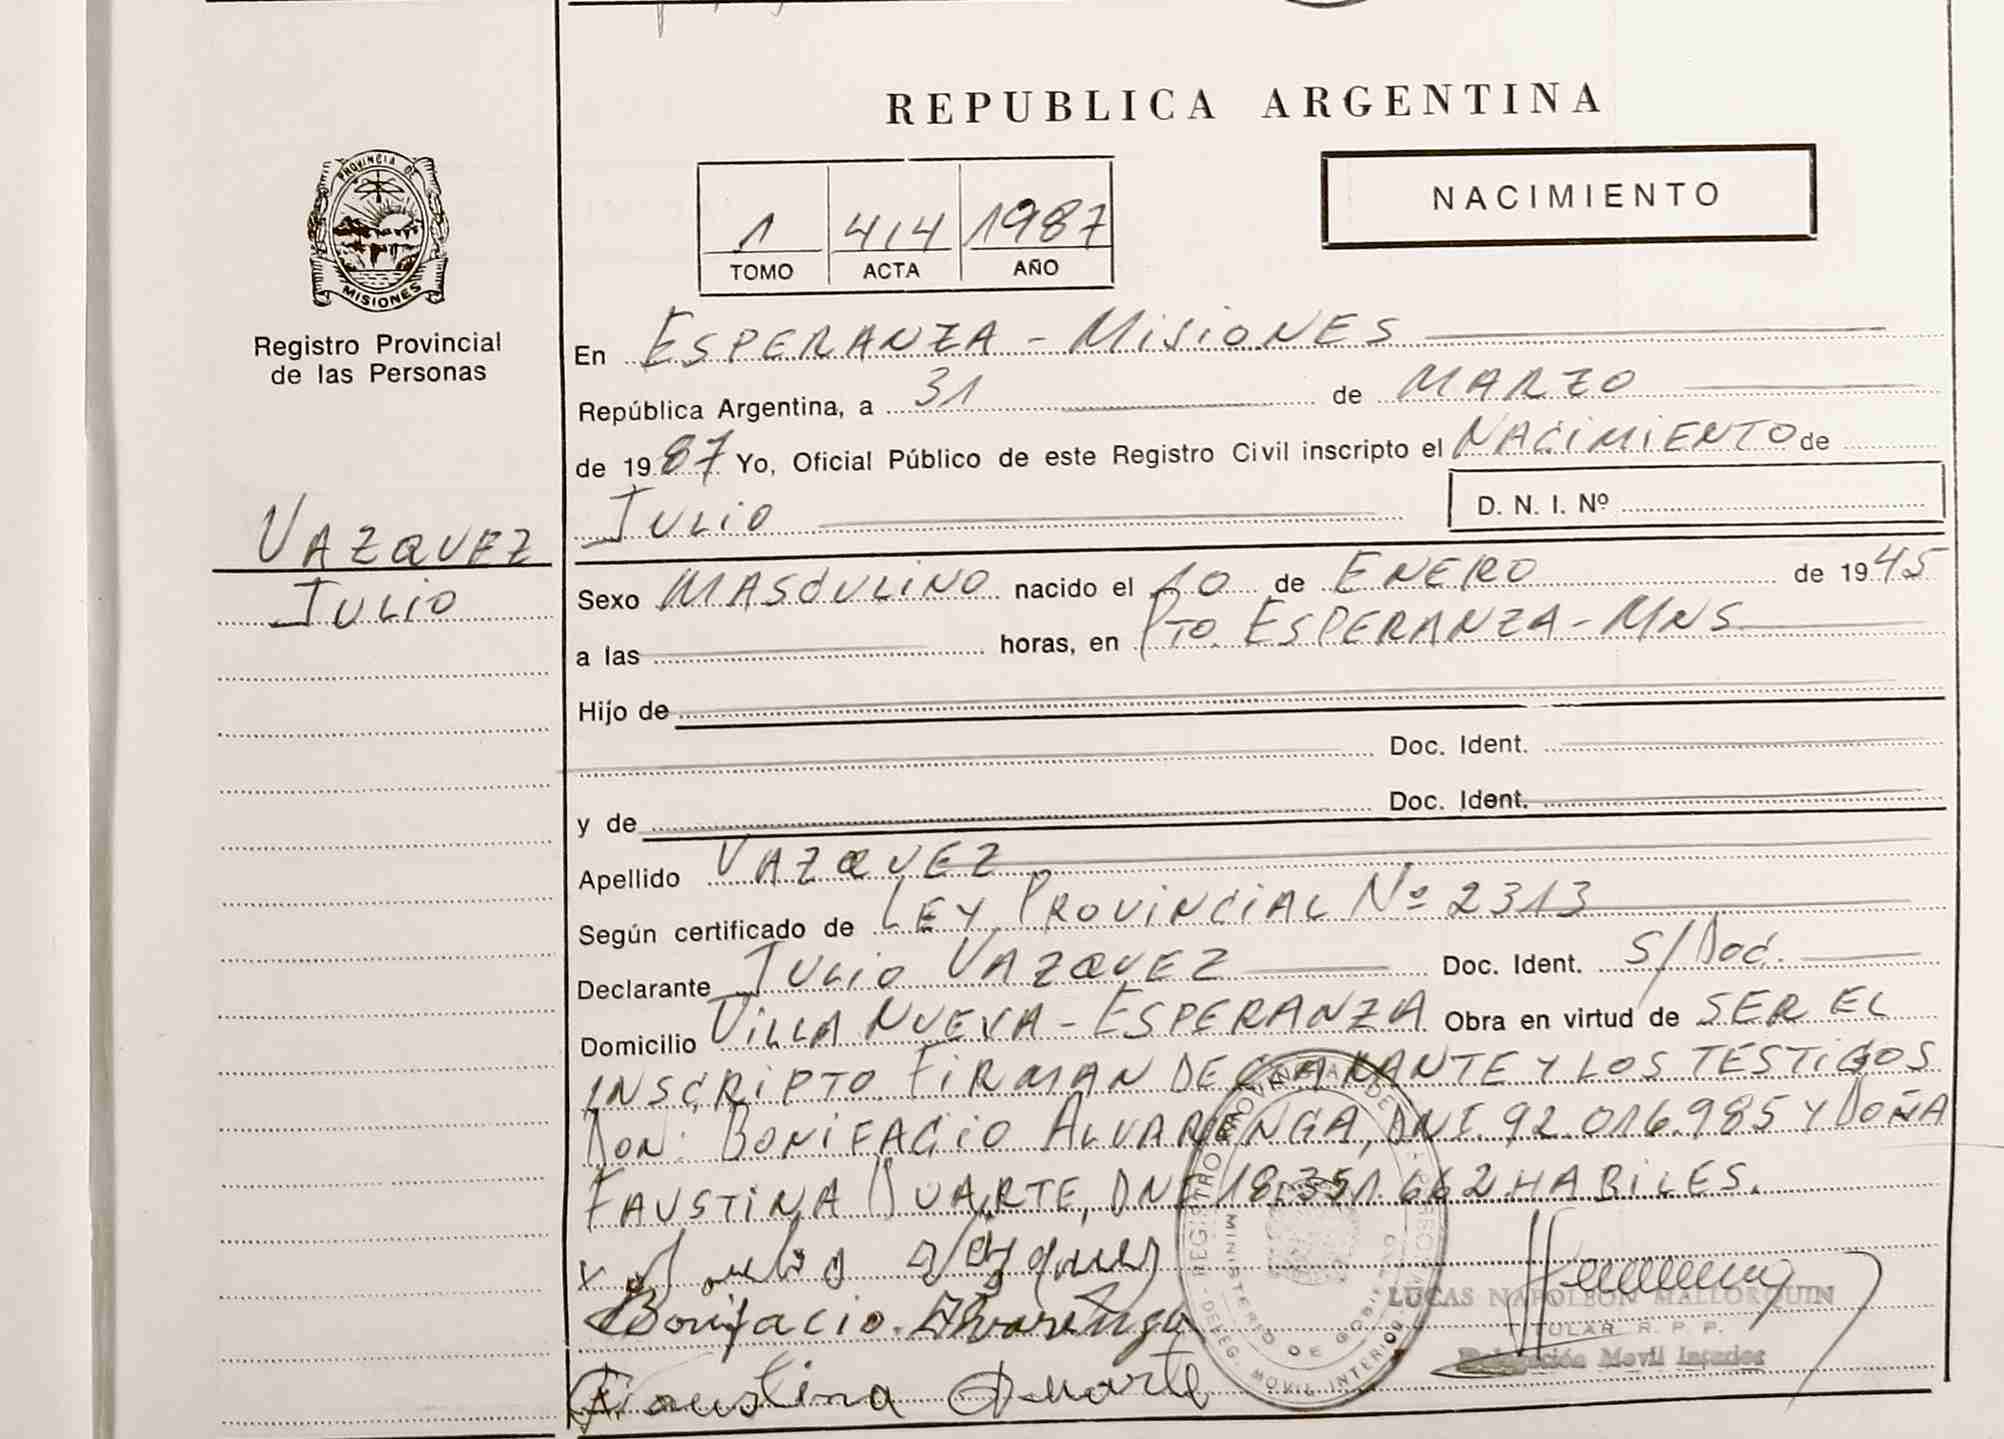 REPUBLICA ARGENTINA
PROVINCIA DE
MISIONES
Registro Provincial
de las Personas
1 414 1987
TOMO ACTA AÑO
NACIMIENTO
En ESPERANZA - MISIONES
República Argentina, a 31 de MARZO
de 1987 Yo, Oficial Público de este Registro Civil inscripto el NACIMIENTO de
JULIO D. N. I. Nº
VAZQUEZ
JULIO
Sexo MASCULINO nacido el 10 de ENERO de 1945
a las horas, en Pto. ESPERANZA - MNS
Hijo de
Doc. Ident.
y de Doc. Ident.
Apellido VAZQUEZ
Según certificado de LEY PROVINCIAL Nº 2313
Declarante JULIO VAZQUEZ Doc. Ident. S/Doc.
Domicilio VILLA NUEVA - ESPERANZA Obra en virtud de SER EL
INSCRIPTO. FIRMAN DECLARANTE Y LOS TESTIGOS
DON: BONIFACIO ALVARENGA, DNI. 92.016.985 Y DOÑA
FAUSTINA DUARTE, DNI 18.351.662 HABILES.
x Julio Vazquez
Bonifacio Alvarenga
Faustina Duarte
REGISTRO PROVINCIAL DE
MINISTERIO DE GOBIERNO
DELEG. MOVIL INTERIOR
LUCAS NAPOLEON MALLORQUIN
TITULAR R. P. P.
Delegación Movil Interior